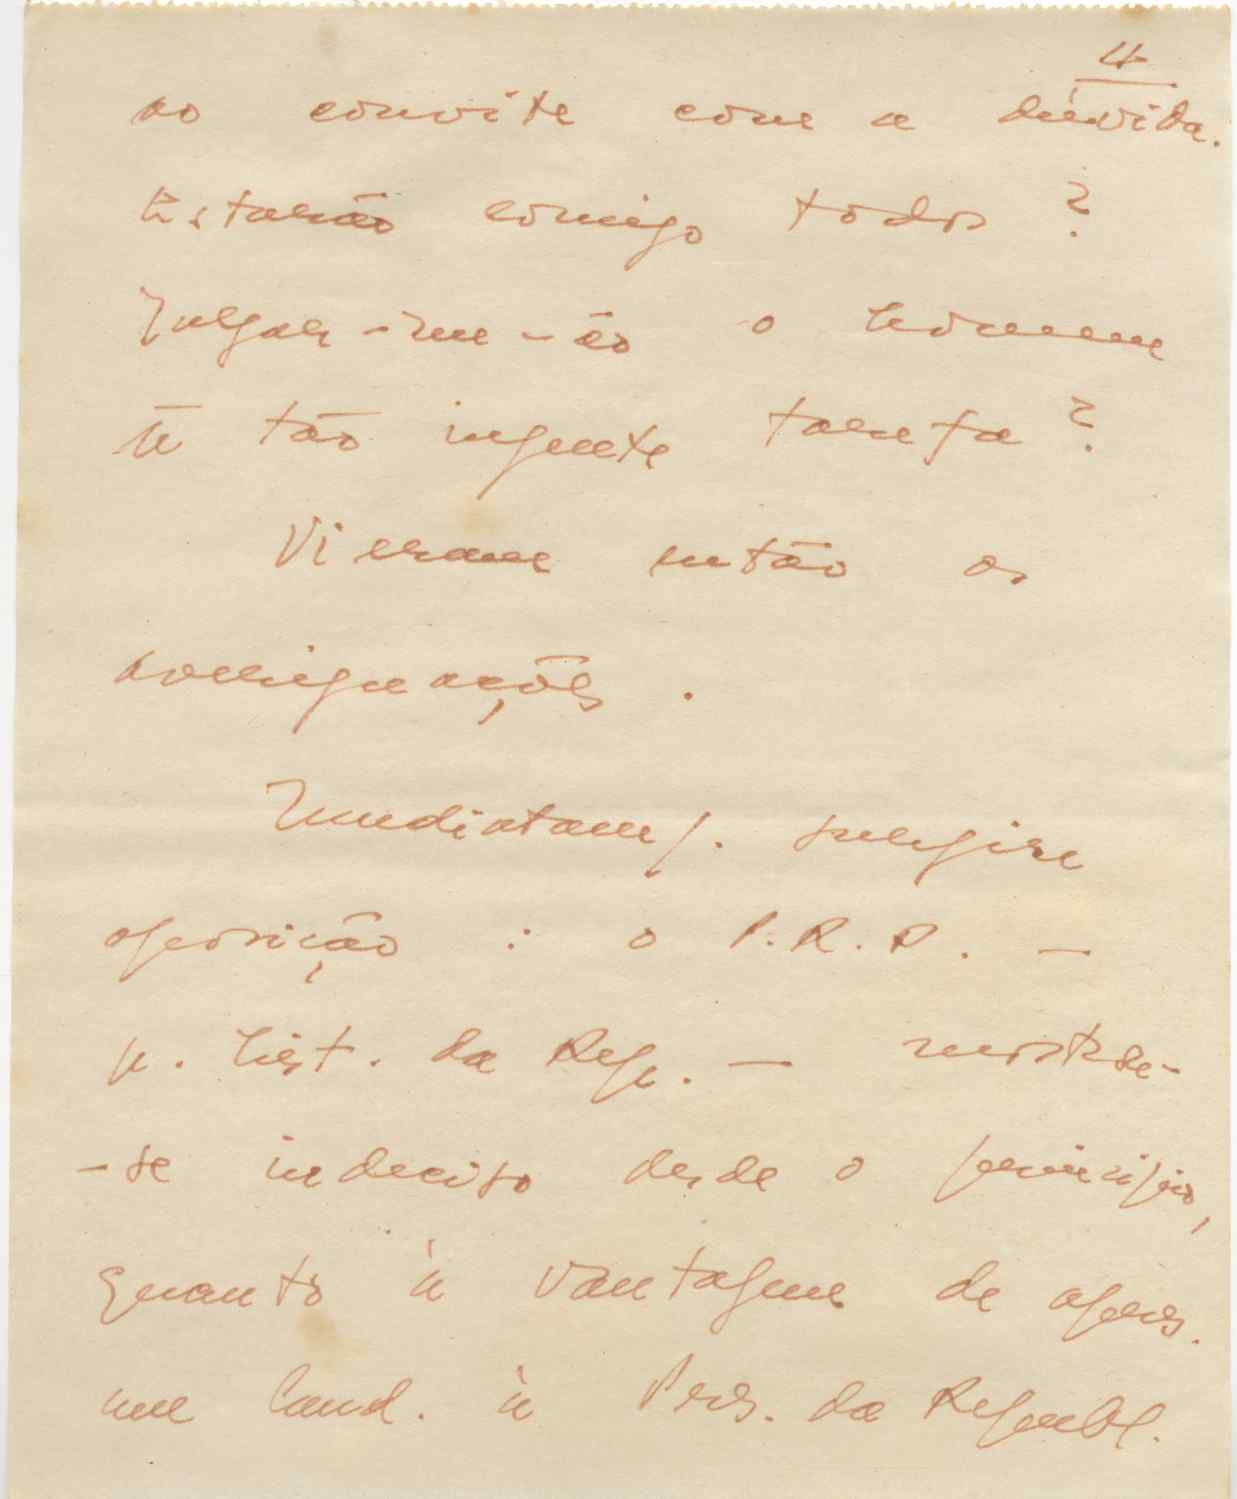 4
ao convite com a dúvida.
Estarão comigo todos?
Julgar-me-ão o homem
p̄ tão ingente tarefa?
Vieram então as
averiguações.
Imediatam/. surgiu
oposição: o P.R.P. —
p. hist. da Rep. — mostra-
-se indeciso desde o princípio,
quanto à vantagem de apres.
um Cand. à Pres. da Republ.